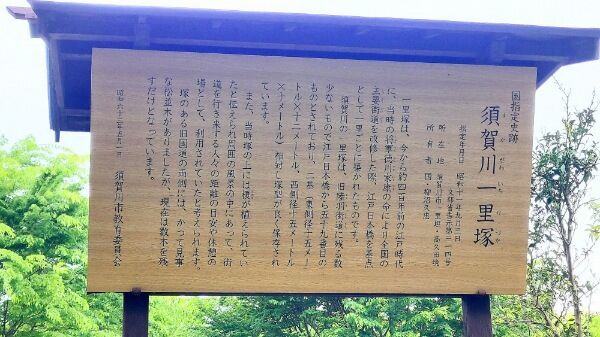 国指定史跡
須賀川一里塚
すかがわいちりづか
指定年月日 昭和十一年九月三日
所在地 須賀川市一里坦・高久田境
所有者 国・柳沼久忠
一里塚は、今から約四百年前の江戸時代
に、当時の将軍徳川家康の命により全国の
主要街道を改修した際、江戸日本橋を基点
として一里ごとに築かれたものです。
須賀川の一里塚は、旧陸羽街道に残る数
少ないもので江戸日本橋から五十九番目の
ものとされており、二基(東側径十五メー
トル×十二メートル、西側径十五メートル
×十一メートル)相対し塚型が良く保存され
ています。
また、当時塚の上には榎が植えられてい
たと伝えられ周囲の風景の中にあって、街
道を行き来する人々の距離の目安や休憩の
場として、利用されていたと考えられます。
塚のある旧国道の両側には、かつて見事
な松並木がありましたが、現在は数本を残
すだけとなっています。
昭和六十二年五月一日 須賀川市教育委員会